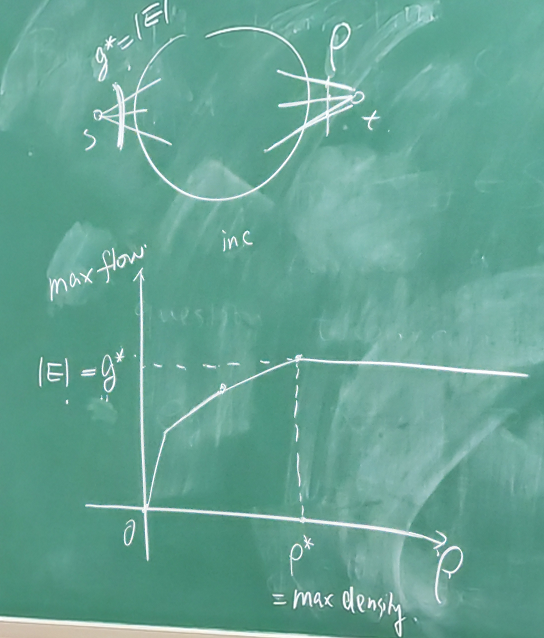 g* = |E|
ρ
s
t
inc
max flow
|E| = g*
0
ρ*
ρ
= max density.